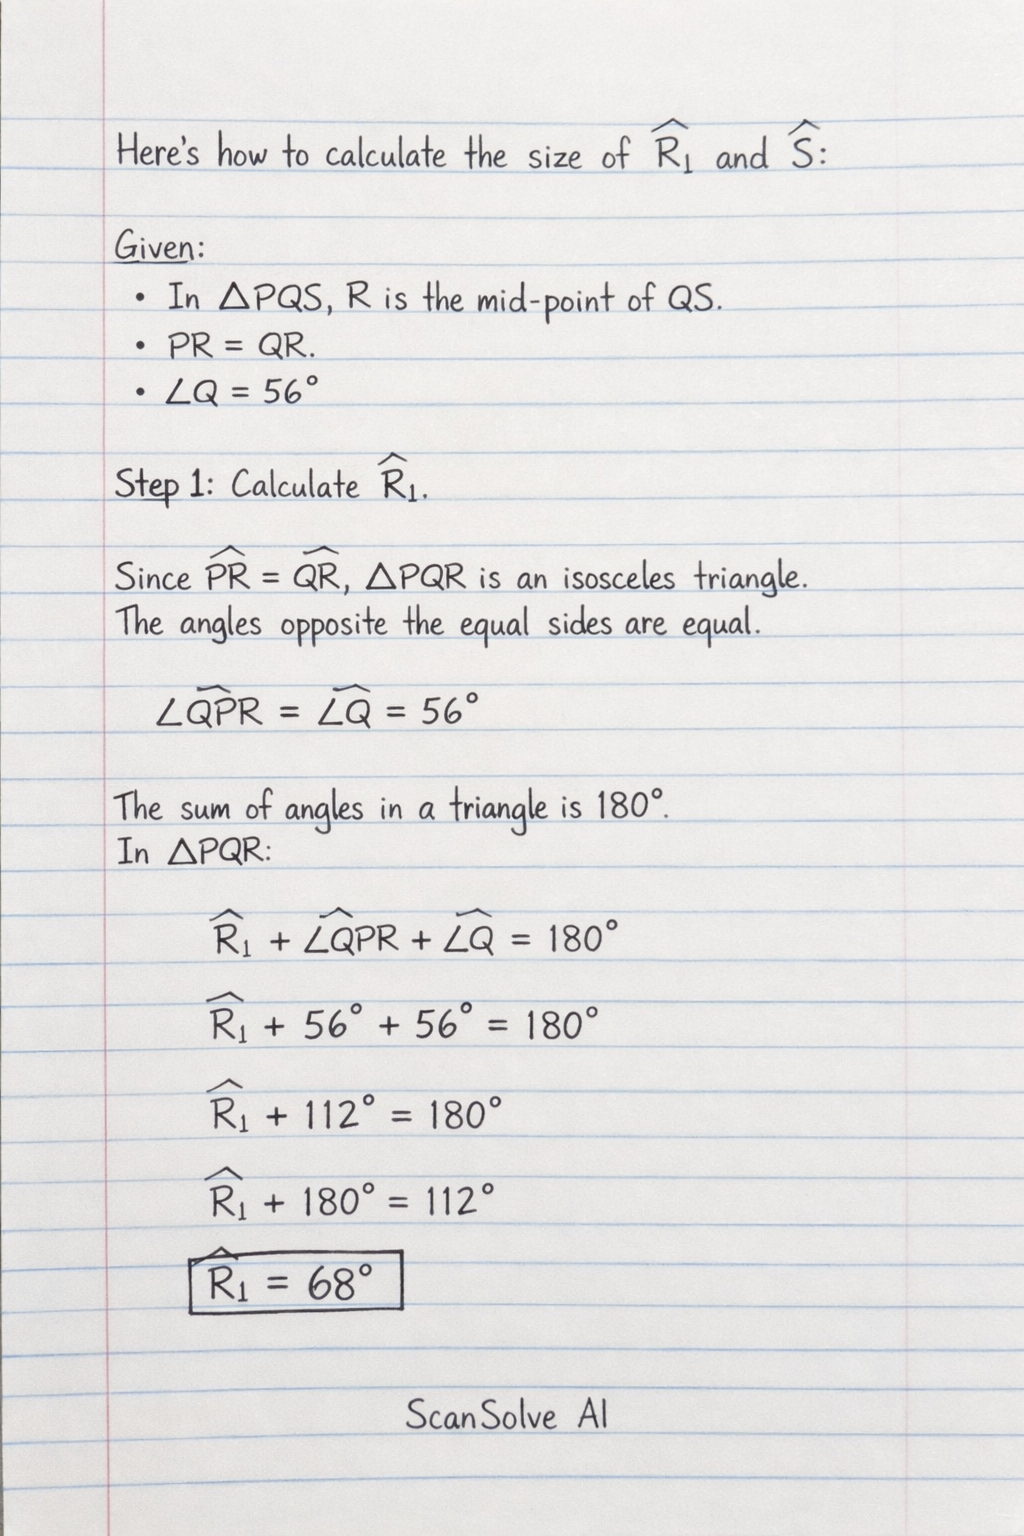 Here's how to calculate the size of R̂₁ and Ŝ:
Given:
• In △PQS, R is the mid-point of QS.
• PR = QR.
• ∠Q = 56°
Step 1: Calculate R̂₁.
Since P͡R = Q͡R, △PQR is an isosceles triangle.
The angles opposite the equal sides are equal.
∠Q͡PR = ∠Q̂ = 56°
The sum of angles in a triangle is 180°.
In △PQR:
R̂₁ + ∠Q̂PR + ∠Q̂ = 180°
R̂₁ + 56° + 56° = 180°
R̂₁ + 112° = 180°
R̂₁ + 180° = 112°
R̂₁ = 68°
ScanSolve AI